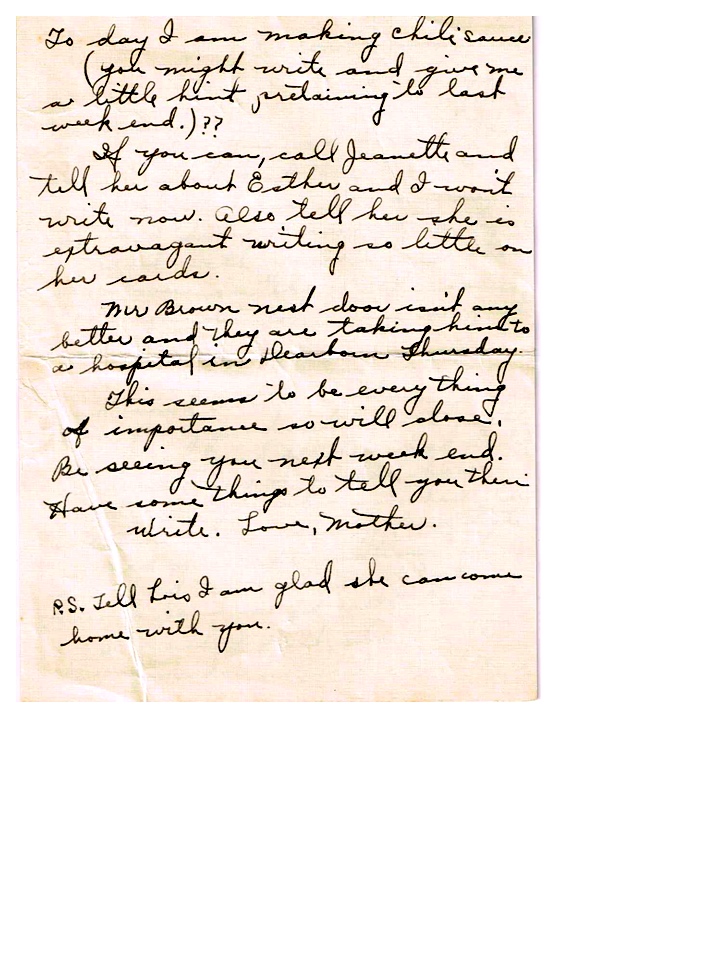 To day I am making chili sauce
(you might write and give me
a little hint pretaining to last
week end.)??
If you can, call Jeanette and
tell her about Esther and I won't
write now. Also tell her she is
extravagant writing so little on
her cards.
Mr Brown nest door isn't any
better and they are taking him to
a hospital in Dearborn Thursday.
This seems to be every thing
of importance so will close.
Be seeing you next week end.
Have some things to tell you then
Write. Love, Mother.
P.S. Tell Lois I am glad she can come
home with you.